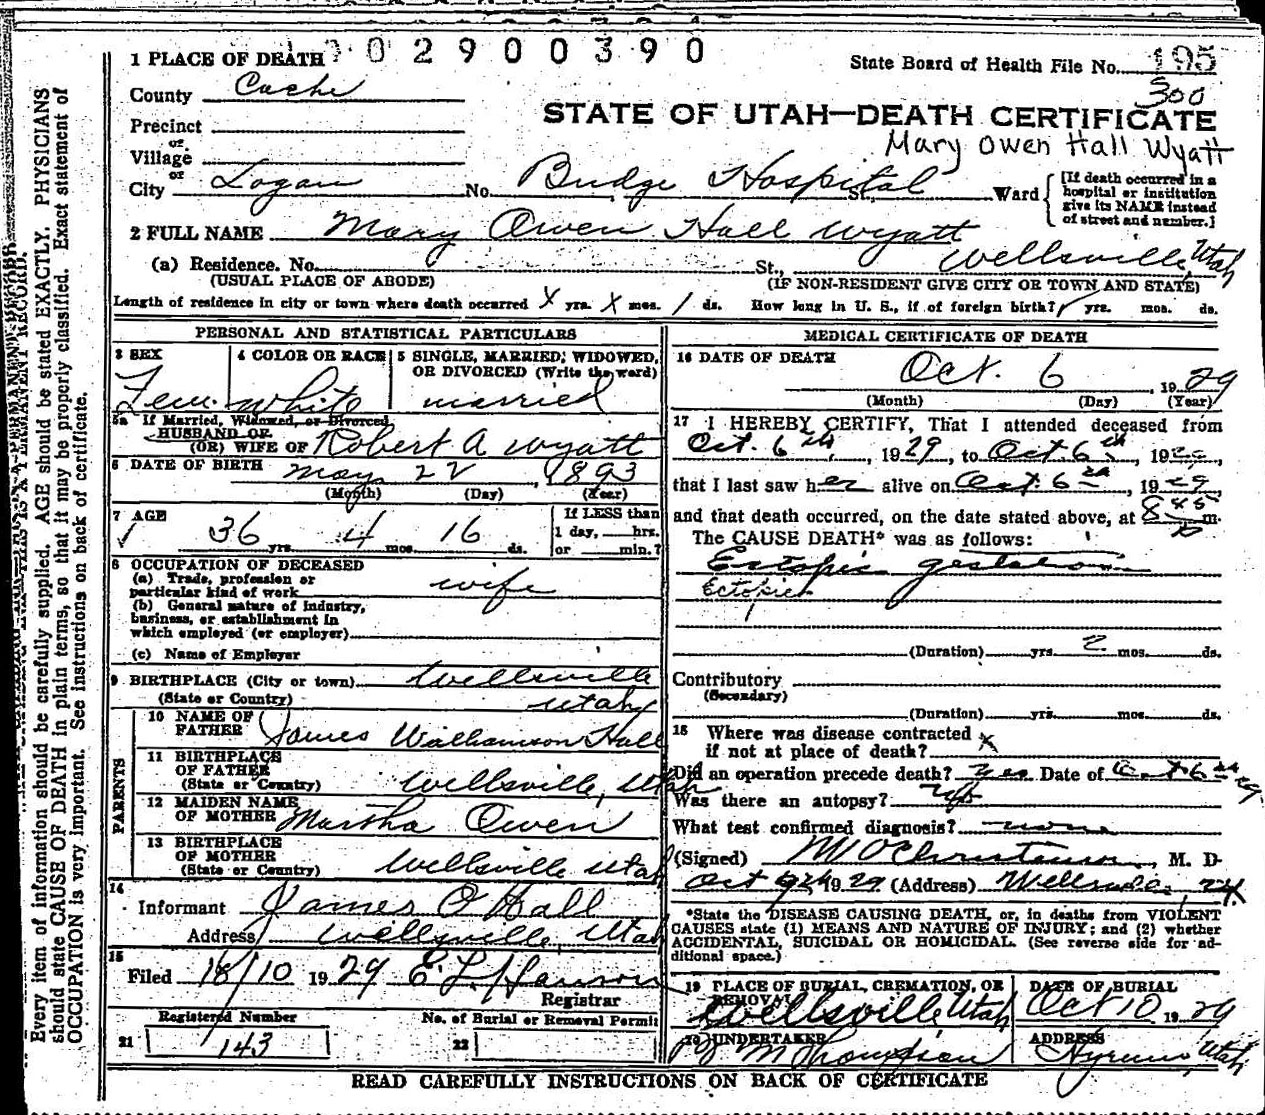 0 2 9 0 0 3 9 0
1 PLACE OF DEATH
State Board of Health File No. 195
300
County Cache
STATE OF UTAH—DEATH CERTIFICATE
Mary Owen Hall Wyatt
Precinct
or
Village
or
City Logan No. Budge Hospital St., Ward
[If death occurred in a hospital or institution give its NAME instead of street and number.]
2 FULL NAME Mary Owen Hall Wyatt
(a) Residence. No. St., Wellsville, Utah
(USUAL PLACE OF ABODE) (IF NON-RESIDENT GIVE CITY OR TOWN AND STATE)
Length of residence in city or town where death occurred X yrs. X mos. 1 ds. How long in U. S., if of foreign birth? yrs. mos. ds.
PERSONAL AND STATISTICAL PARTICULARS
3 SEX Fem.
4 COLOR OR RACE White
5 SINGLE, MARRIED, WIDOWED, OR DIVORCED (Write the word) married
5a If Married, Widowed, or Divorced
HUSBAND OF
(OR) WIFE OF Robert A Wyatt
6 DATE OF BIRTH May 22, 1893
(Month) (Day) (Year)
7 AGE
36 yrs. 4 mos. 16 ds.
If LESS than
1 day, hrs.
or min.?
8 OCCUPATION OF DECEASED
(a) Trade, profession or
particular kind of work wife
(b) General nature of industry,
business, or establishment in
which employed (or employer)
(c) Name of Employer
9 BIRTHPLACE (City or town) Wellsville
(State or Country) Utah
PARENTS
10 NAME OF
FATHER James Williamson Hall
11 BIRTHPLACE
OF FATHER
(State or Country) Wellsville, Utah
12 MAIDEN NAME
OF MOTHER Martha Owen
13 BIRTHPLACE
OF MOTHER
(State or Country) Wellsville Utah
14
Informant James O Hall
Address Wellsville, Utah
15
Filed 18/10 1929 E. L. Hanson
Registrar
Registered Number
No. of Burial or Removal Permit
21 143
22
MEDICAL CERTIFICATE OF DEATH
16 DATE OF DEATH
Oct. 6, 1929
(Month) (Day) (Year)
17 I HEREBY CERTIFY, That I attended deceased from
Oct. 6th, 1929, to Oct. 6th, 1929,
that I last saw her alive on Oct. 6th, 1929,
and that death occurred, on the date stated above, at 8 45 m.
The CAUSE DEATH* was as follows:
Ectopic gestation
Ectopic
(Duration) yrs 2 mos. ds.
Contributory
(Secondary)
(Duration) yrs. mos. ds.
18 Where was disease contracted
if not at place of death? X
Did an operation precede death? Yes Date of Oct 6 29
Was there an autopsy?
What test confirmed diagnosis? none
(Signed) M. D.
Oct 1929 (Address) Wellsville,
*State the DISEASE CAUSING DEATH, or, in deaths from VIOLENT
CAUSES state (1) MEANS AND NATURE OF INJURY; and (2) whether
ACCIDENTAL, SUICIDAL OR HOMICIDAL. (See reverse side for ad-
ditional space.)
19 PLACE OF BURIAL, CREMATION, OR
REMOVAL
Wellsville, Utah
DATE OF BURIAL
Oct 10 1929
20 UNDERTAKER
M Thompson
ADDRESS
Hyrum, Utah
READ CAREFULLY INSTRUCTIONS ON BACK OF CERTIFICATE
THIS IS A PERMANENT RECORD.
Every item of information should be carefully supplied. AGE should be stated EXACTLY. PHYSICIANS
should state CAUSE OF DEATH in plain terms, so that it may be properly classified. Exact statement of
OCCUPATION is very important. See instructions on back of certificate.